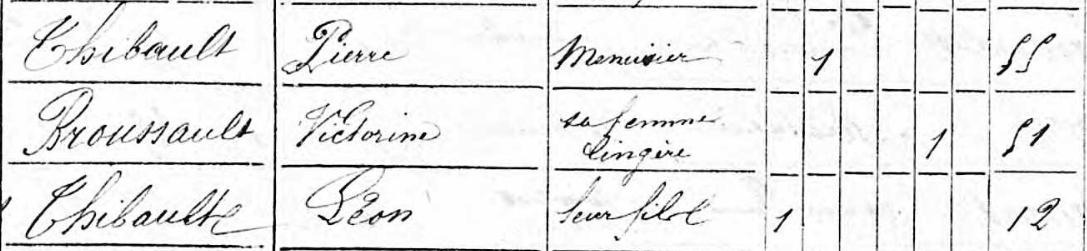 Thibault Pierre Menuisier 1 55
Broussault Victorine sa femme
Lingère 1 51
Thibault Léon leur fils 1 12